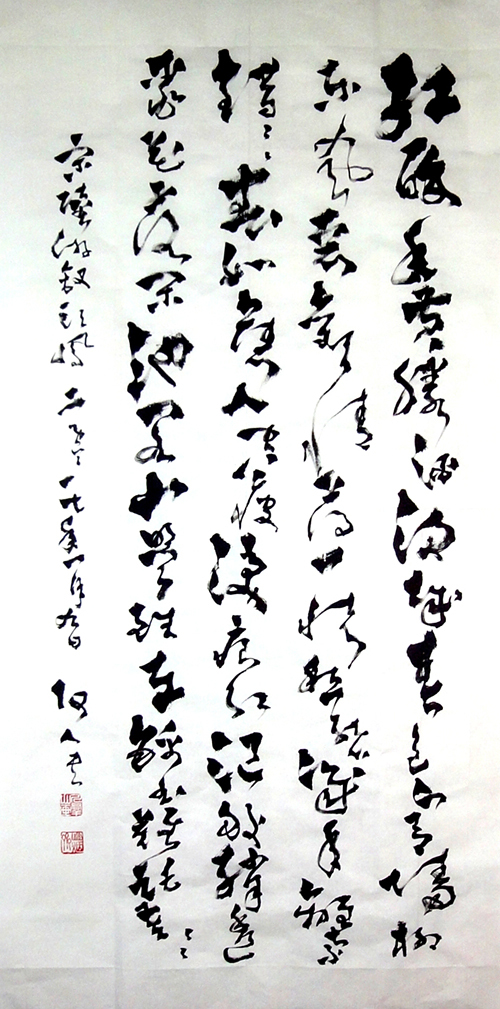 红酥手黄縢酒满城春色宫墙柳
东风恶欢情薄一怀愁绪几年离索
错々々春如旧人空瘦泪痕红浥鲛绡透
桃花落闲池阁山盟虽在锦书难托莫々々
宋陆游钗头凤 二〇一七年 月九日